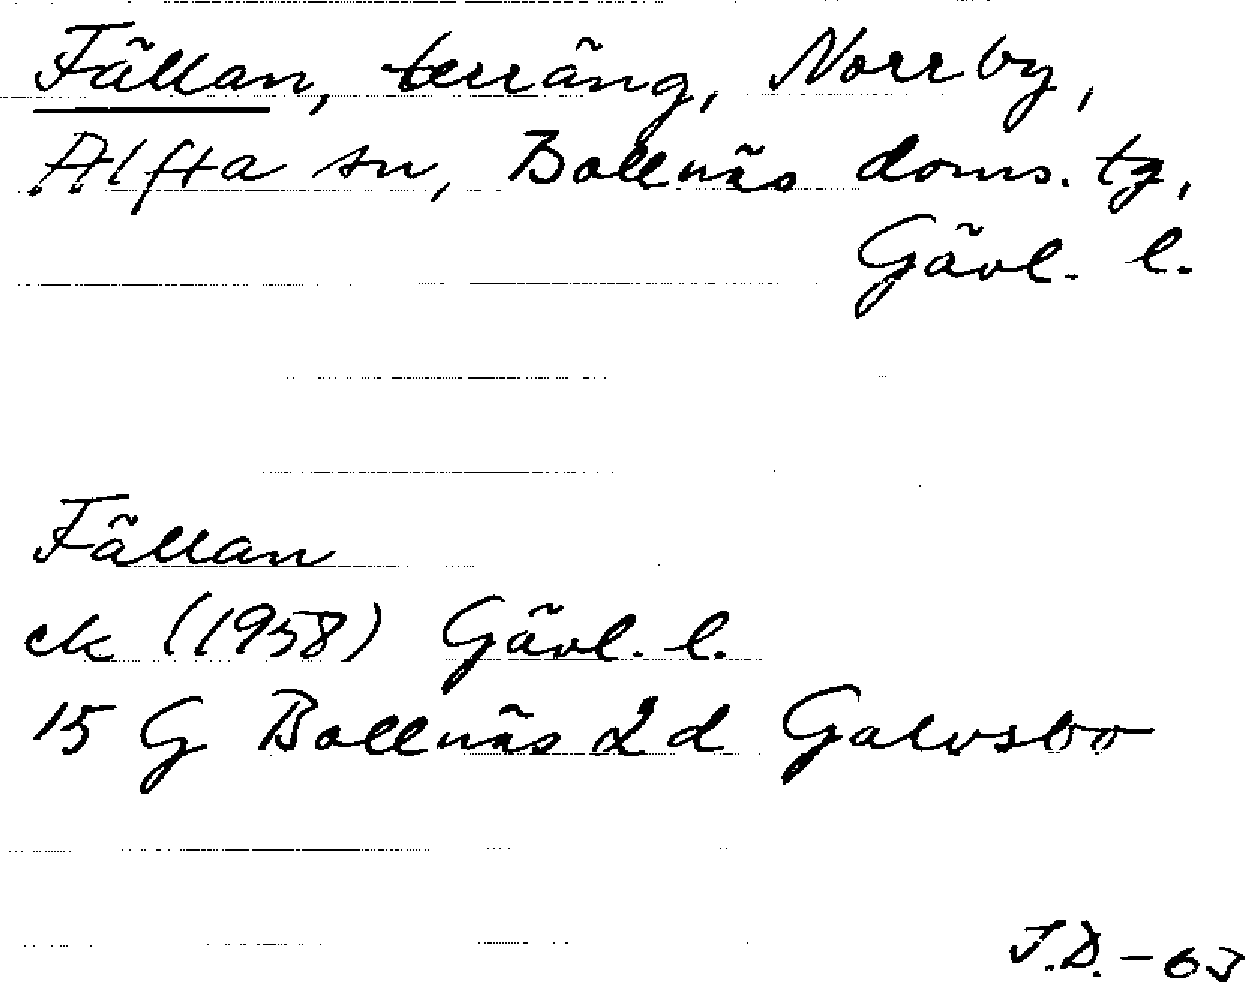 Fällan, terräng, Norrby,
Alfta sn, Bollnäs doms. tg,
Gävl. l.
Fällan
ek (1958) Gävl. l.
15 G Bollnäs 2 d Galvsbo
J.D. - 63